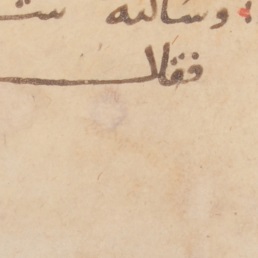 وسالته
فقال